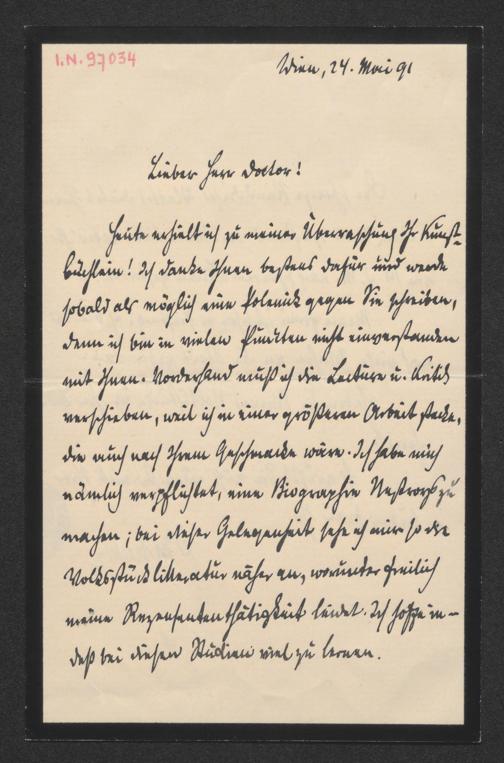 I.N. 97034
Wien, 24. Mai 91
Lieber Herr Doctor!
Heute erhielt ich zu meiner Überraschung Ihr Kunst-
büchlein! Ich danke Ihnen bestens dafür und werde
sobald als möglich eine Polemik gegen Sie schreiben,
denn ich bin in vielen Punkten nicht einverstanden
mit Ihnen. Vorderhand muß ich die Lectüre u. Kritik
verschieben, weil ich in einer größeren Arbeit stecke,
die auch nach Ihrem Geschmacke wäre. Ich habe mich
nämlich verpflichtet, eine Biographie Nestroys zu
machen; bei dieser Gelegenheit sehe ich mir so die
Volksstücklitteratur näher an, worunter freilich
meine Rezensententhätigkeit leidet. Ich hoffe in-
deß bei diesen Studien viel zu lernen.